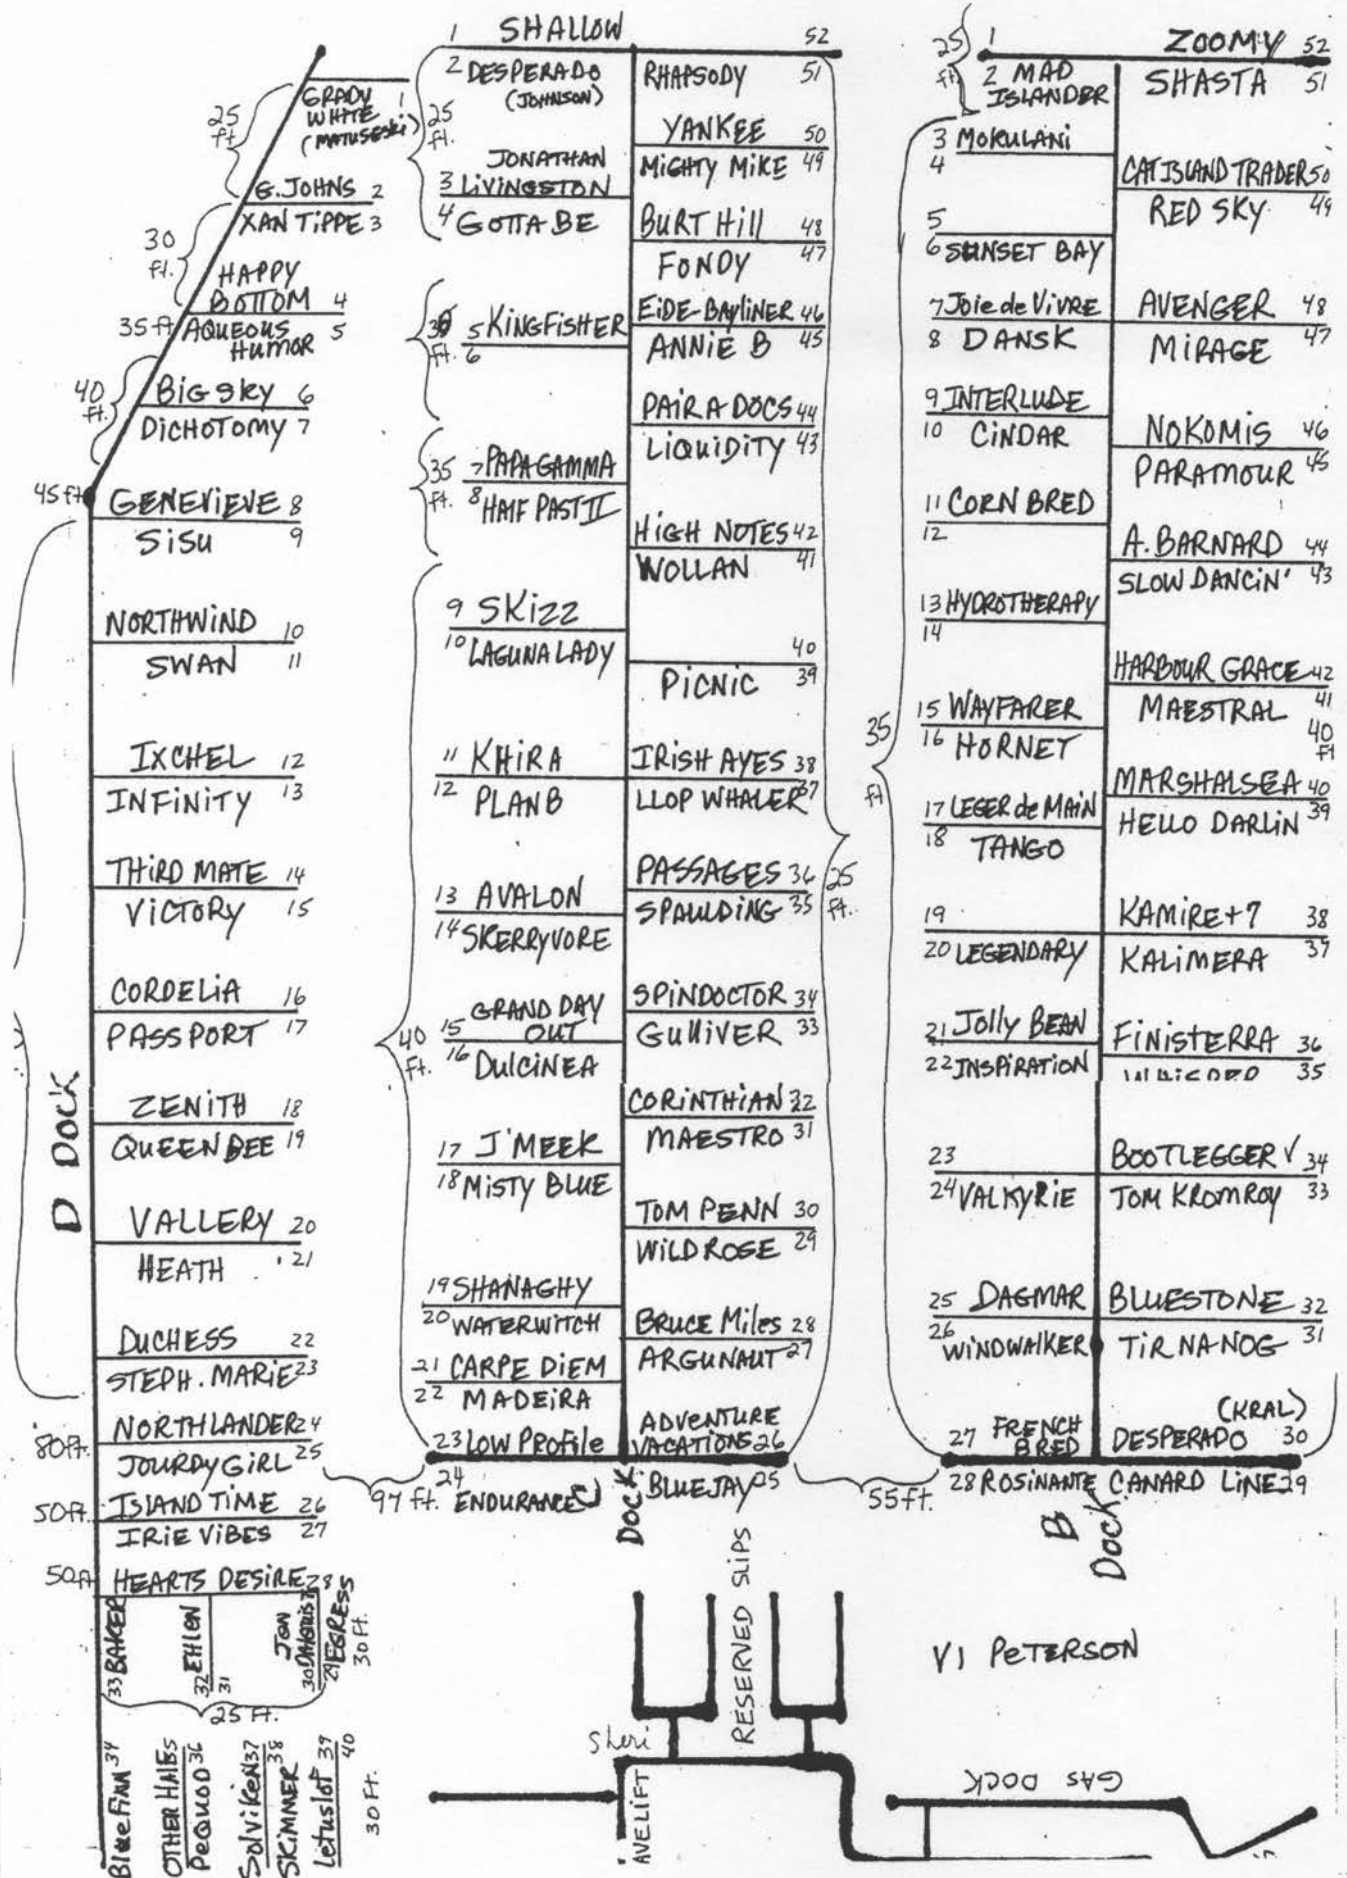 25 ft.
GRADY 1
WHITE
(MATUSESKI)
G. JOHNS 2
XANTIPPE 3
30 ft.
HAPPY
BOTTOM 4
35 ft
AQUEOUS 5
HUMOR
40 ft.
BIG SKY 6
DICHOTOMY 7
45 ft
GENEVIEVE 8
SISU 9
NORTHWIND 10
SWAN 11
IXCHEL 12
INFINITY 13
THIRD MATE 14
VICTORY 15
CORDELIA 16
PASSPORT 17
D DOCK
ZENITH 18
QUEEN BEE 19
VALLERY 20
HEATH 21
DUCHESS 22
STEPH. MARIE 23
NORTHLANDER 24
80ft.
JOURDY GIRL 25
50ft.
ISLAND TIME 26
IRIE VIBES 27
50ft
HEARTS DESIRE 28
33 BAKER
32 EHLEN
31
30 JON
29 EGRESS
30 Ft.
25 Ft.
BlueFinn 34
OTHER HALES
PEQUOD 36
Solviken 37
SKIMMER 38
Letuslot 39
40
30 Ft.
1 SHALLOW 52
25 ft.
2 DESPERADO
(JOHNSON)
JONATHAN
3 LIVINGSTON
4 GOTTA BE
ft.
5 KINGFISHER
6
35 ft.
7 PAPA GAMMA
8 HALF PAST II
9 SKIZZ
10 LAGUNA LADY
11 KHIRA
12 PLAN B
13 AVALON
14 SKERRYVORE
40 ft.
GRAND DAY
15 OUT
16 DULCINEA
17 J'MEEK
18 MISTY BLUE
19 SHANAGHY
20 WATERWITCH
21 CARPE DIEM
22 MADEIRA
23 LOW PROFILE
24 ENDURANCE
97 ft.
RHAPSODY 51
YANKEE 50
MIGHTY MIKE 49
BURT HILL 48
FONDY 47
EIDE-BAYLINER 46
ANNIE B 45
PAIR A DOCS 44
LIQUIDITY 43
HIGH NOTES 42
WOLLAN 41
40
PICNIC 39
IRISH AYES 38
LLOP WHALER 37
PASSAGES 36
SPAULDING 35
25 ft.
SPINDOCTOR 34
GULLIVER 33
CORINTHIAN 32
MAESTRO 31
TOM PENN 30
WILDROSE 29
BRUCE Miles 28
ARGUNAUT 27
ADVENTURE
VACATIONS 26
BLUEJAY 25
DOCK
55ft.
25 ft.
1 ZOOMY 52
2 MAD
ISLANDER
3 MOKULANI
4
5
6 SUNSET BAY
7 Joie de Vivre
8 DANSK
9 INTERLUDE
10 CINDAR
11 CORN BRED
12
13 HYDROTHERAPY
14
15 WAYFARER
16 HORNET
35 ft
17 LEGER de MAIN
18 TANGO
19
20 LEGENDARY
21 Jolly BEAN
22 INSPIRATION
23
24 VALKYRIE
25 DAGMAR
26 WINDWALKER
27 FRENCH
BRED
28 ROSINANTE
SHASTA 51
CAT ISLAND TRADER 50
RED SKY 49
AVENGER 48
MIRAGE 47
NOKOMIS 46
PARAMOUR 45
A. BARNARD 44
SLOW DANCIN' 43
HARBOUR GRACE 42
MAESTRAL 41
40 ft
MARSHALSEA 40
HELLO DARLIN 39
KAMIRE+7 38
KALIMERA 37
FINISTERRA 36
35
BOOTLEGGER √ 34
TOM KROMROY 33
BLUESTONE 32
TIR NA NOG 31
(KRAL)
DESPERADO 30
CANARD LINE 29
B Dock
RESERVED SLIPS
VI PETERSON
Sheri
AVELIFT
GAS DOCK